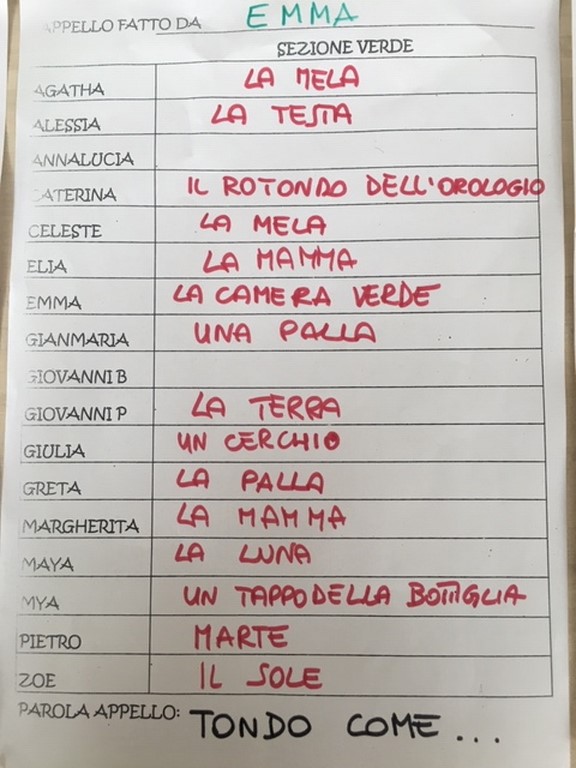 APPELLO FATTO DA EMMA
SEZIONE VERDE
AGATHA LA MELA
ALESSIA LA TESTA
ANNALUCIA
CATERINA IL ROTONDO DELL'OROLOGIO
CELESTE LA MELA
ELIA LA MAMMA
EMMA LA CAMERA VERDE
GIANMARIA UNA PALLA
GIOVANNI B
GIOVANNI P LA TERRA
GIULIA UN CERCHIO
GRETA LA PALLA
MARGHERITA LA MAMMA
MAYA LA LUNA
MYA UN TAPPO DELLA BOTTIGLIA
PIETRO MARTE
ZOE IL SOLE
PAROLA APPELLO: TONDO COME...